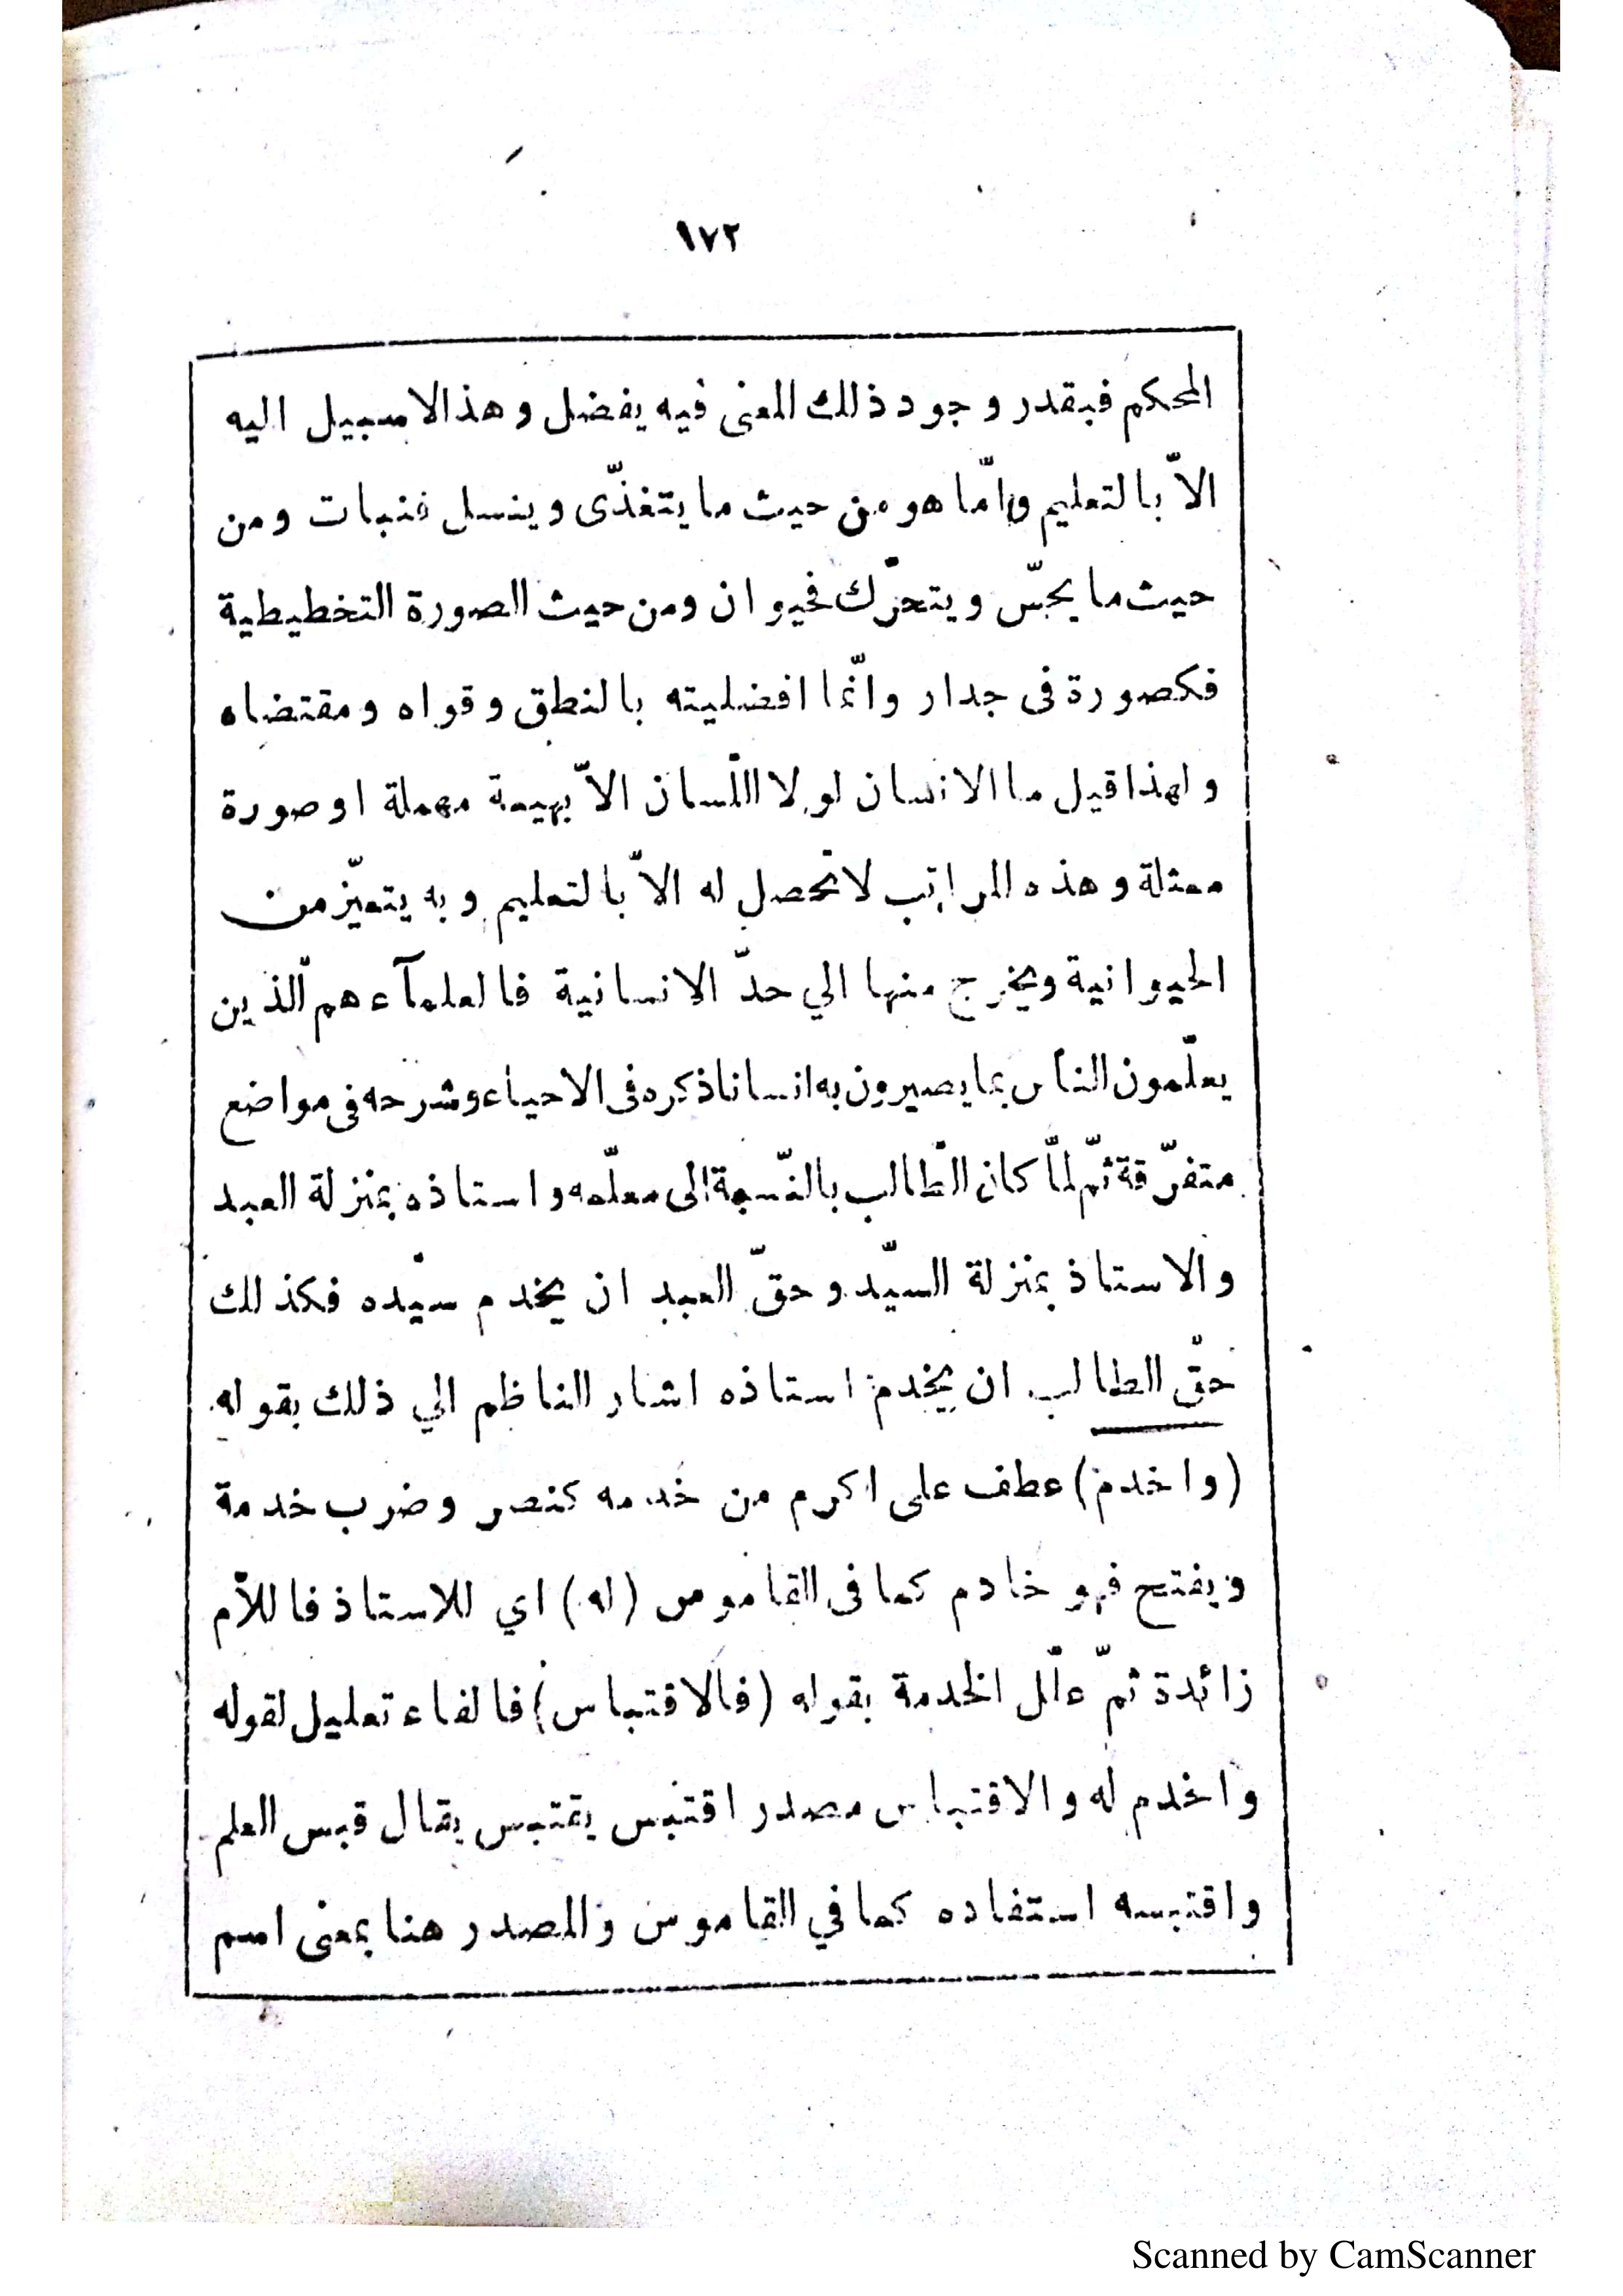 ١٧٢
المحكم فبقدر وجود ذلك المعنى فيه يفضل وهذا لا سبيل اليه
الاّ بالتعليم وامّا هو من حيث ما يتغذّى وينسل فنبات ومن
حيث ما يحسّ ويتحرّك فحيوان ومن حيث الصورة التخطيطية
فكصورة فى جدار وانّما افضليته بالنطق وقواه ومقتضاه
ولهذا قيل ما الانسان لولا اللّسان الاّ بهيمة مهملة او صورة
ممثلة وهذه المراتب لا تحصل له الاّ بالتعليم وبه يتميّز من
الحيوانية ويخرج منها الي حدّ الانسانية فالعلمآء هم الّذين
يعلّمون الناس بما يصيرون به انسانا ذكره فى الاحياء وشرحه فى مواضع
متفرّقة ثمّ لمّا كان الطّالب بالنّسبة الى معلّمه واستاذه بمنزلة العبد
والاستاذ بمنزلة السيّد وحقّ العبد ان يخدم سيّده فكذلك
حقّ الطالب ان يخدم استاذه اشار الناظم الي ذلك بقوله
(واخدم) عطف على اكرم من خدمه كنصر وضرب خدمة
ويفتح فهو خادم كما فى القاموس (له) اي للاستاذ فاللاّم
زائدة ثمّ علّل الخدمة بقوله (فالاقتباس) فالفاء تعليل لقوله
واخدم له والاقتباس مصدر اقتبس يقتبس يقال قبس العلم
واقتبسه استفاده كما في القاموس والمصدر هنا بمعنى اسم
Scanned by CamScanner